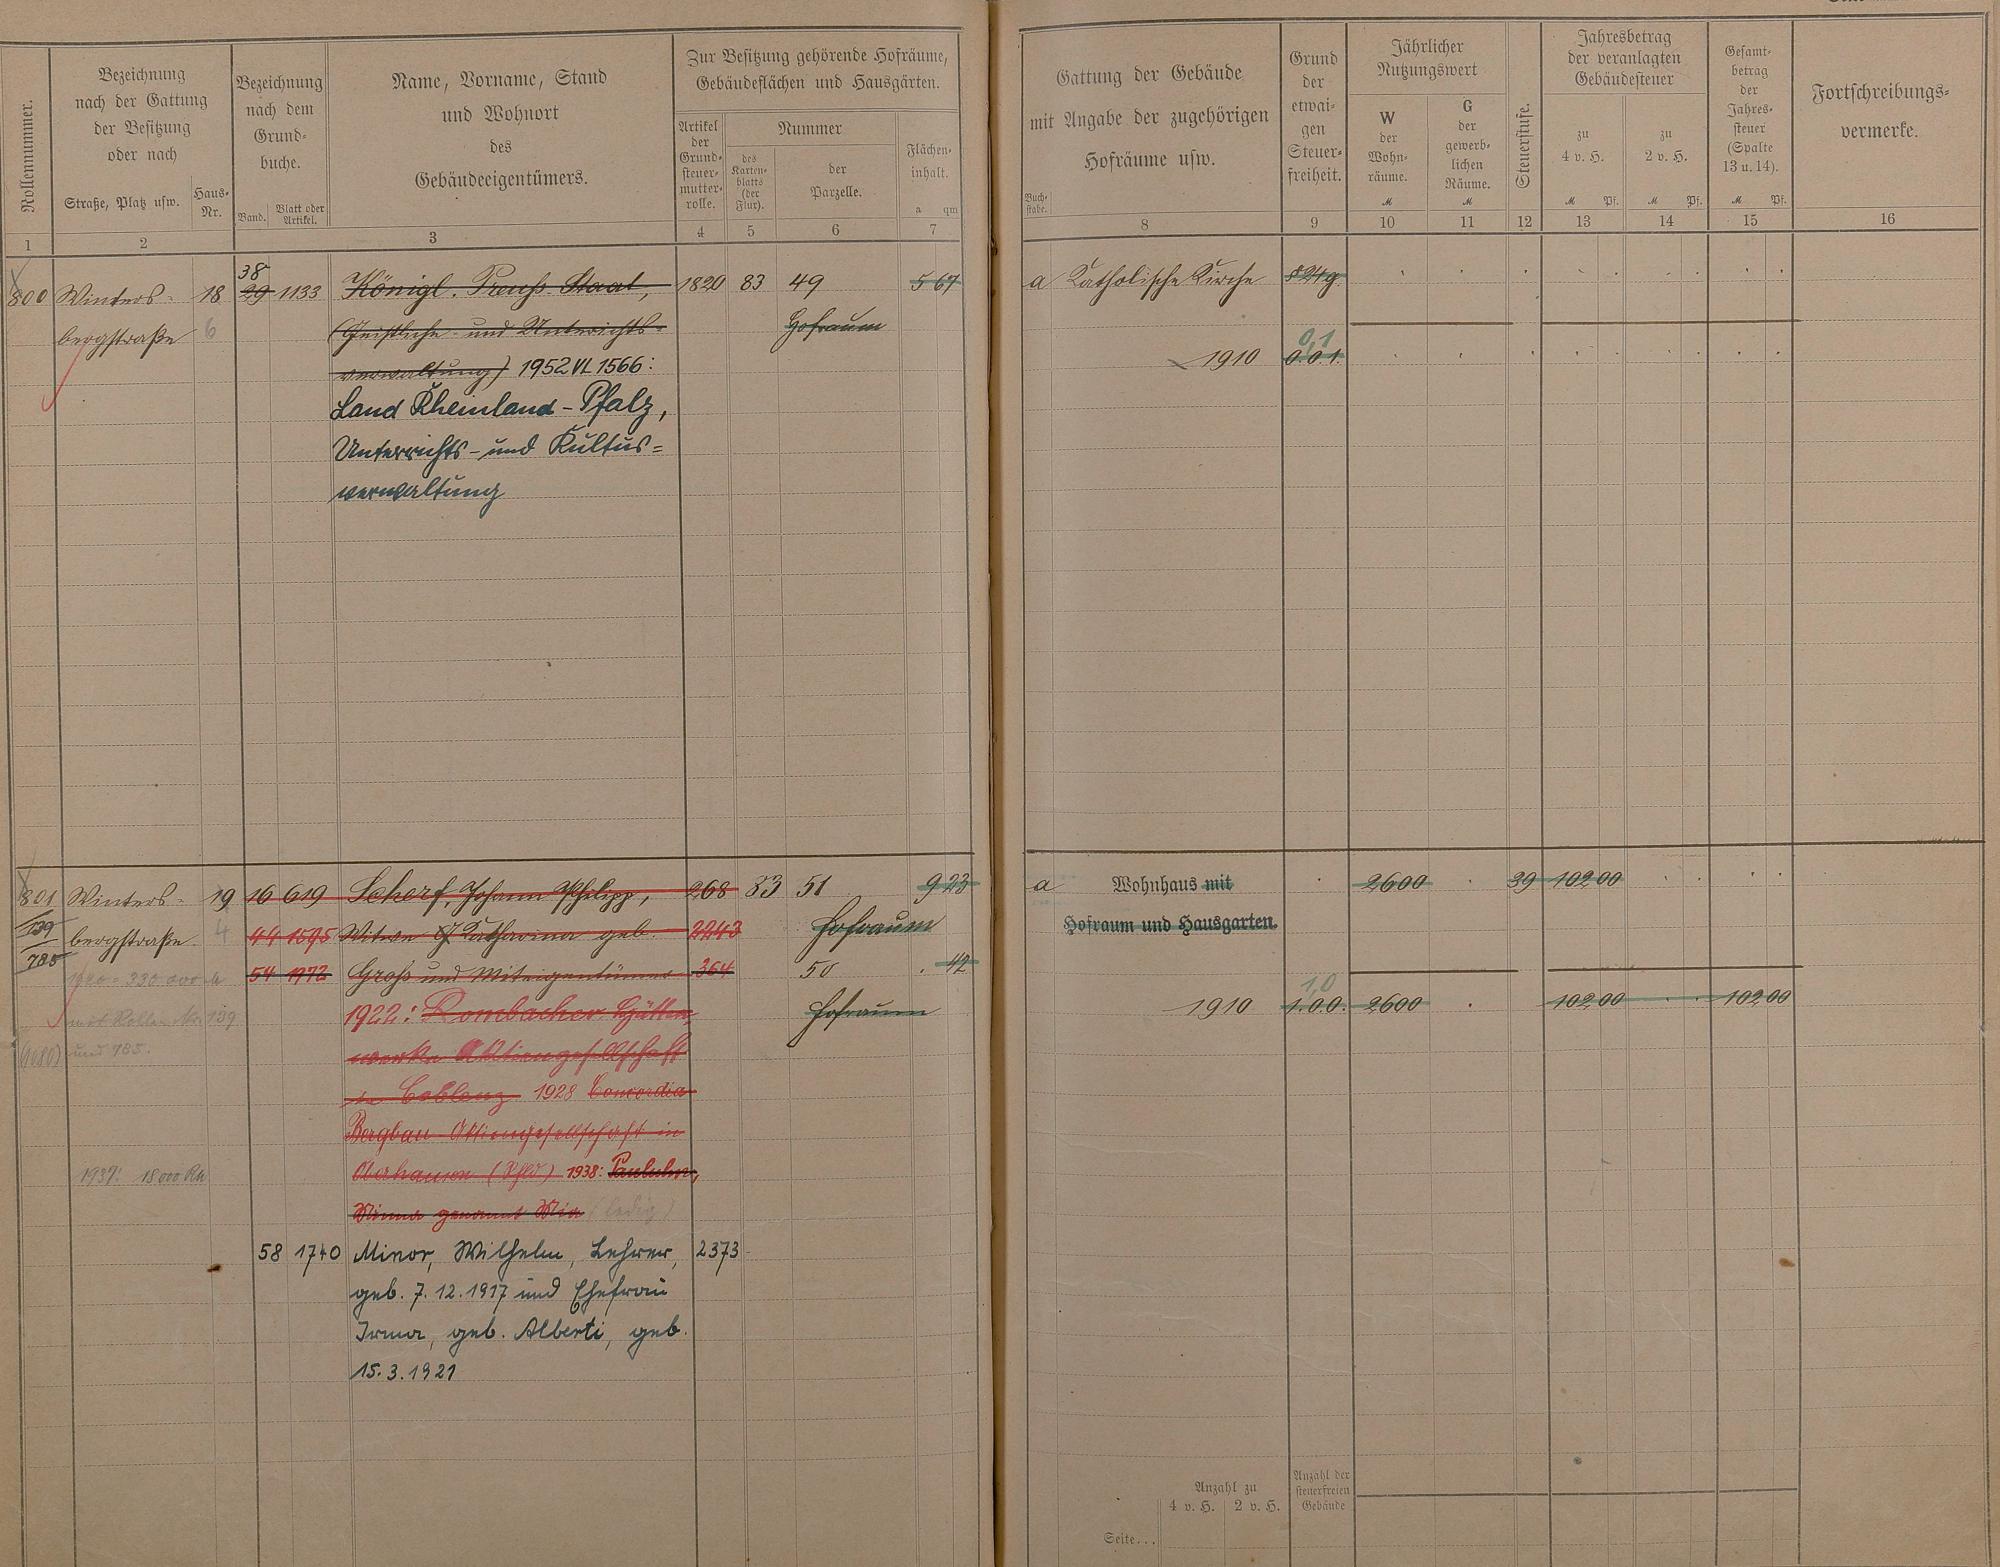 Rollennummer.
Bezeichnung
nach der Gattung
der Besitzung
oder nach
Straße, Platz usw.
Haus-
Nr.
Bezeichnung
nach dem
Grund-
buche.
Band.
Blatt oder
Artikel.
Name, Vorname, Stand
und Wohnort
des
Gebäudeeigentümers.
Zur Besitzung gehörende Hofräume,
Gebäudeflächen und Hausgärten.
Artikel
der
Grund-
steuer-
mutter-
rolle.
Nummer
des
Karten-
blatts
(der
Flur).
der
Parzelle.
Flächen-
inhalt.
a qm
1 2 3 4 5 6 7
Gattung der Gebäude
mit Angabe der zugehörigen
Hofräume usw.
Buch-
stabe.
Grund
der
etwai-
gen
Steuer-
freiheit.
Jährlicher
Nutzungswert
W
der
Wohn-
räume.
M
G
der
gewerb-
lichen
Räume.
M
Steuerstufe.
Jahresbetrag
der veranlagten
Gebäudesteuer
zu
4 v. H.
M Pf.
zu
2 v. H.
M Pf.
Gesamt-
betrag
der
Jahres-
steuer
(Spalte
13 u. 14).
M Pf.
Fortschreibungs-
vermerke.
8 9 10 11 12 13 14 15 16
38
800 Winters- 18 29 1133 Königl. Preuß. Staat, 1820 83 49 5 67
bergstraße 6 (Geistliche- und Unterichts- Hofraum
verwaltung) 1952 VI 1566:
Land Rheinland-Pfalz,
Unterrichts- und Kultus=
verwaltung
a Katholische Kirche § 24g.
0,1
1910 0.0.1.
801 Winters- 19 16 619 Scherf, Johann Philipp, 268 83 51 9 23
139 bergstraße 4 44 1595 Witwe Katharina geb. 2243 Hofraum
785 54 1972 Groß und Miteigentümer 364 50 . 42
1920 = 330 000 M
1922: Rombacher Hütten- Hofraum
mit Rollen Nr. 139
werke Aktiengesellschaft
und 785.
in Coblenz 1928 Concordia
Bergbau-Aktiengesellschaft in
1937: 18000 RM
Oberhausen (Rhld) 1938:
Minna genannt Mia (ledig)
58 1740 Minor, Wilhelm, Lehrer, 2373
geb. 7.12.1917 und Ehefrau
Irma, geb. Alberti, geb.
15.3.1921
a Wohnhaus mit 2600 39 102 00
Hofraum und Hausgarten.
1,0
1910 1.0.0. 2600 102 00 102 00
Anzahl zu
4 v. H. 2 v. H.
Anzahl der
steuerfreien
Gebäude
Seite...